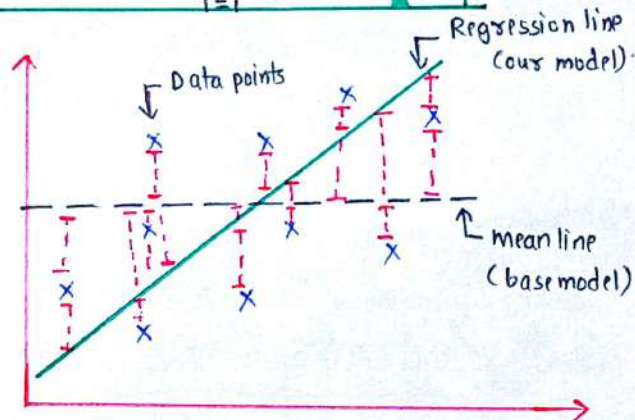 Regression line
(our model).
Data points
mean line
(base model)